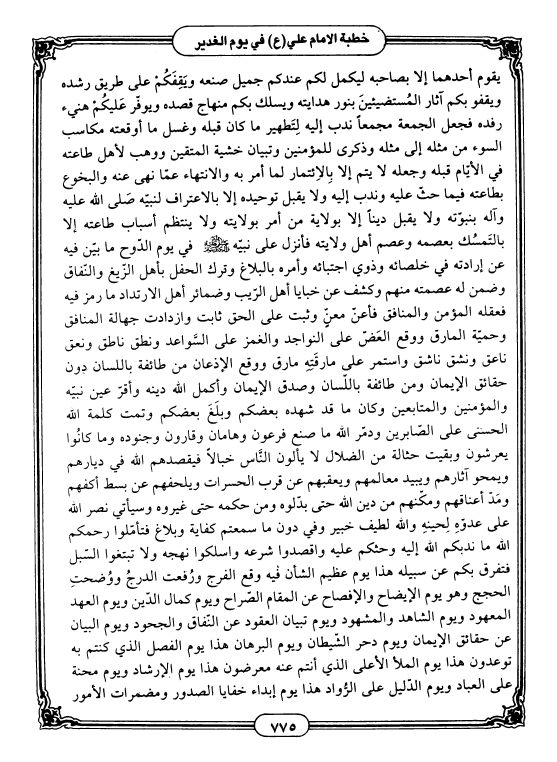 خطبة الامام علي(ع) في يوم الغدير
يقوم أحدهما إلا بصاحبه ليكمل لكم عندكم جميل صنعه ويَقِفَكُمْ على طريق رشده
ويقفو بكم آثار المُستضيئين بنور هدايته ويسلك بكم منهاج قصده ويوفّر عَليكُمْ هنيء
رفده فجعل الجمعة مجمعاً ندب إليه لِتَطهير ما كان قبله وغسل ما أوقعته مكاسب
السوء من مثله إلى مثله وذكرى للمؤمنين وتبيان خشية المتقين ووهب لأهل طاعته
في الأيّام قبله وجعله لا يتم إلا بِالإئتمار لما أمر به والانتهاء عمّا نهى عنه والبخوع
بطاعته فيما حثّ عليه وندب إليه ولا يقبل توحيده إلا بالاعتراف لنبيّه صَلى الله عليه
وآله بنبوّته ولا يقبل ديناً إلا بولاية من أمر بولايته ولا ينتظم أسباب طاعته إلا
بالتَمسُّك بعصمه وعصم أهل ولايته فأنزل على نبيّه ﷺ في يوم الدّوح ما بيّن فيه
عن إرادته في خلصائه وذوي اجتبائه وأمره بالبلاغ وترك الحفل بأهل الزّيغ والنّفاق
وضمن له عصمته منهم وكشف عن خبايا أهل الرّيب وضمائر أهل الارتداد ما رمز فيه
فعقله المؤمن والمنافق فأعنّ معنّ وثبت على الحق ثابت وازدادت جهالة المنافق
وحميّة المارق ووقع العَضّ على النواجد والغمز على السَّواعد ونطق ناطق ونعق
ناعق ونشق ناشق واستمر على مارقَتِهِ مارق ووقع الإذعان من طائفة باللسان دون
حقائق الإيمان ومن طائفة باللّسان وصدق الإيمان وأكمل الله دينه وأقرّ عين نبيّه
والمؤمنين والمتابعين وكان ما قد شهده بعضكم وبلَغَ بعضكم وتمت كلمة الله
الحسنى على الصّابرين ودمّر الله ما صنع فرعون وهامان وقارون وجنوده وما كانُوا
يعرشون وبقيت حثالة من الضلال لا يألون النَّاس خبالاً فيقصدهم الله في ديارهم
ويمحو آثارهم ويبيد معالمهم ويعقبهم عن قرب الحسرات ويلحقهم عن بسط أكفهم
ومَدّ أعناقهم ومكّنهم من دين الله حتى بدّلوه ومن حكمه حتى غيروه وسيأتي نصر الله
على عدوّه لِحينِهِ والله لطيف خبير وفي دون ما سمعتم كفاية وبلاغ فتأمّلوا رحمكم
الله ما ندبكم الله إليه وحثكم عليه واقصدوا شرعه واسلكوا نهجه ولا تبتغوا السّبل
فتفرق بكم عن سبيله هذا يوم عظيم الشأن فيه وقع الفرج ورُفعت الدرجُ ووُضحتِ
الحجج وهو يوم الإيضاح والإفصاح عن المقام الصّراح ويوم كمال الدّين ويوم العهد
المعهود ويوم الشاهد والمشهود ويوم تبيان العقود عن النّفاق والجحود ويوم البيان
عن حقائق الإيمان ويوم دحر الشّيطان ويوم البرهان هذا يوم الفصل الذي كنتم به
توعدون هذا يوم الملأ الأعلى الذي أنتم عنه معرضون هذا يوم الإرشاد ويوم محنة
على العباد ويوم الدّليل على الرُّواد هذا يوم إبداء خفايا الصدور ومضمرات الأمور
٧٧٥